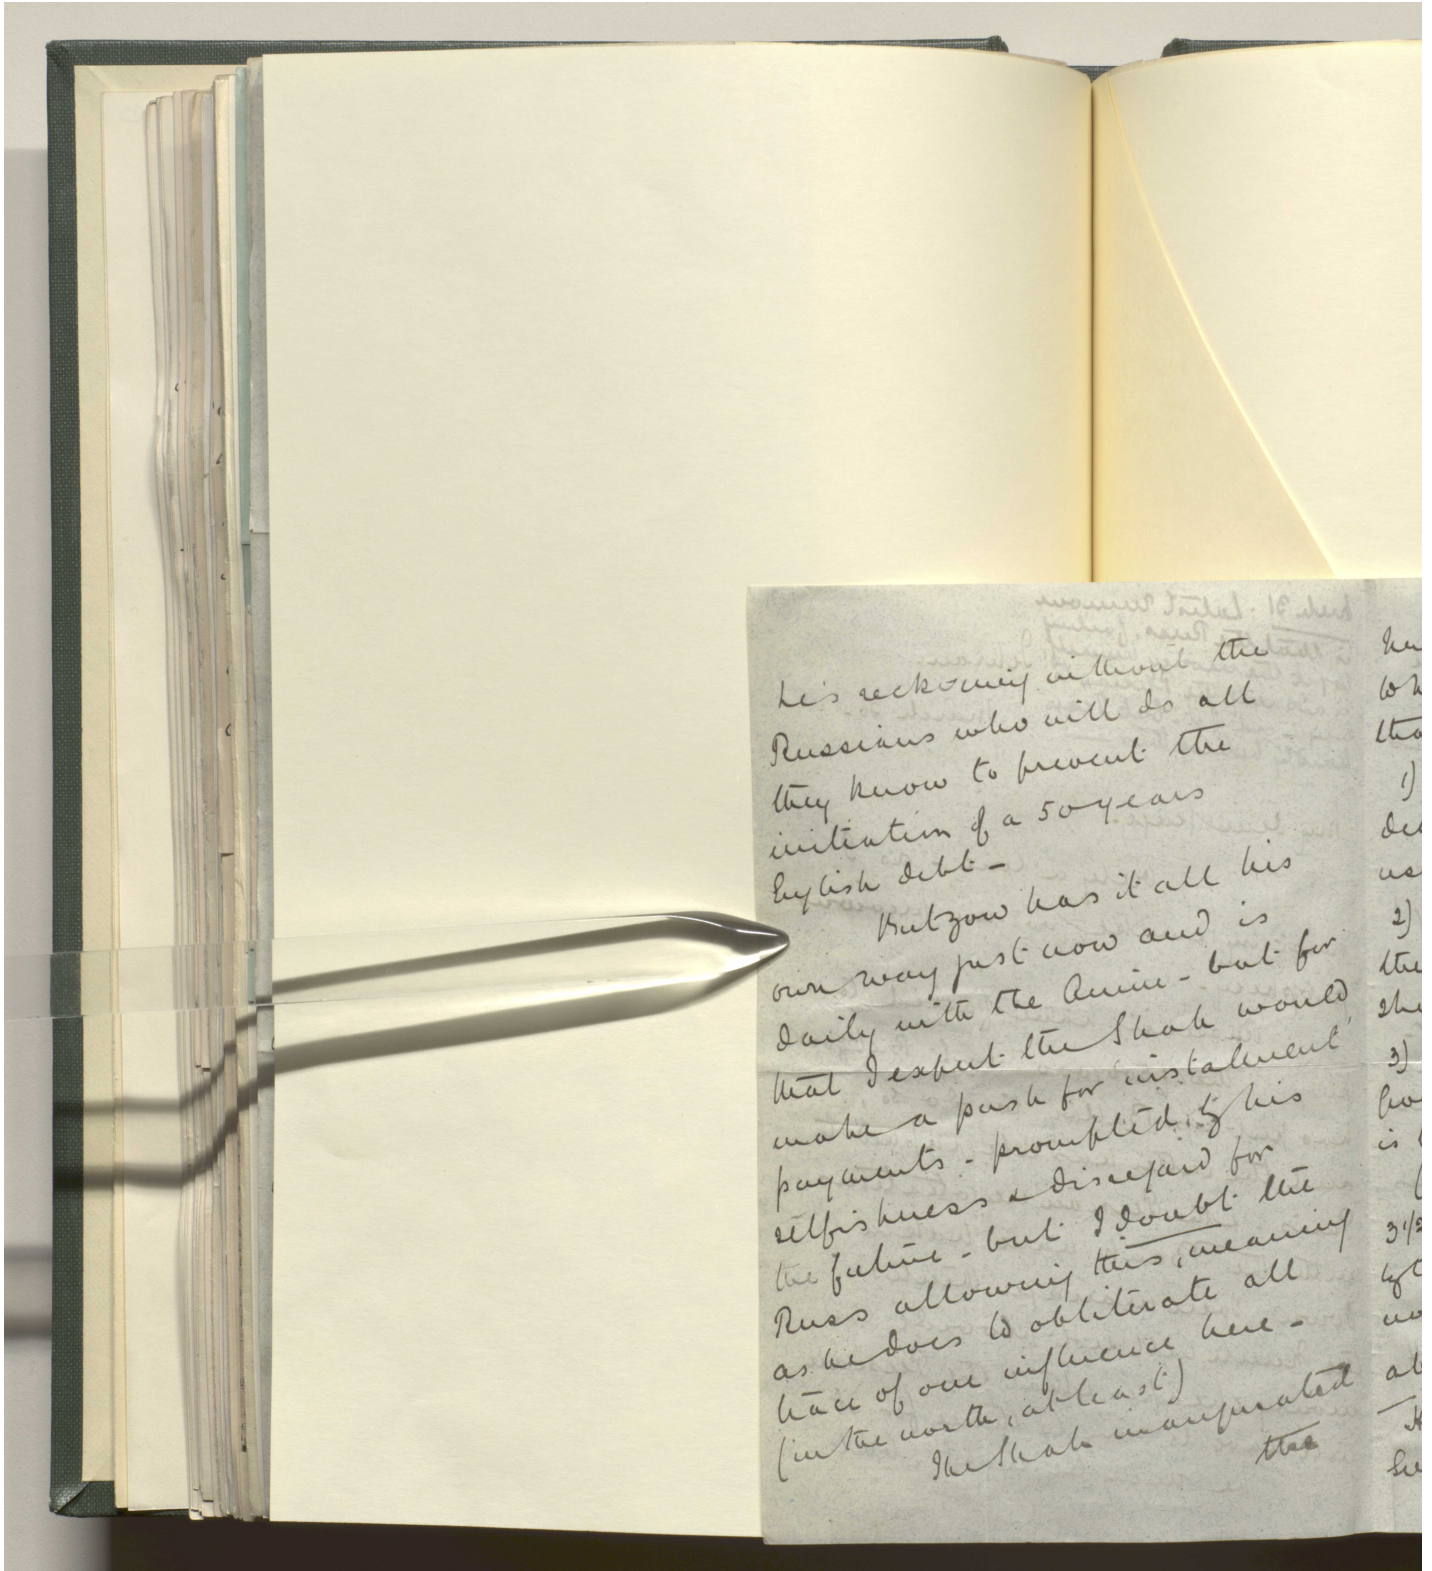 he's reckoning without the
Russians who will do all
they know to prevent the
initiation of a 50 years
English debt -
Butzow has it all his
own way just now and is
daily with the Amin - but for
that I expect the Shah would
make a push for instalment
payments - prompted by his
selfishness & disregard for
the future - but I doubt the
Russ allowing this, meaning
as he does to obliterate all
trace of our influence here -
(in the north, at least)
The Shah inaugurated
the
1)
2)
the
3)
is
3 1/2